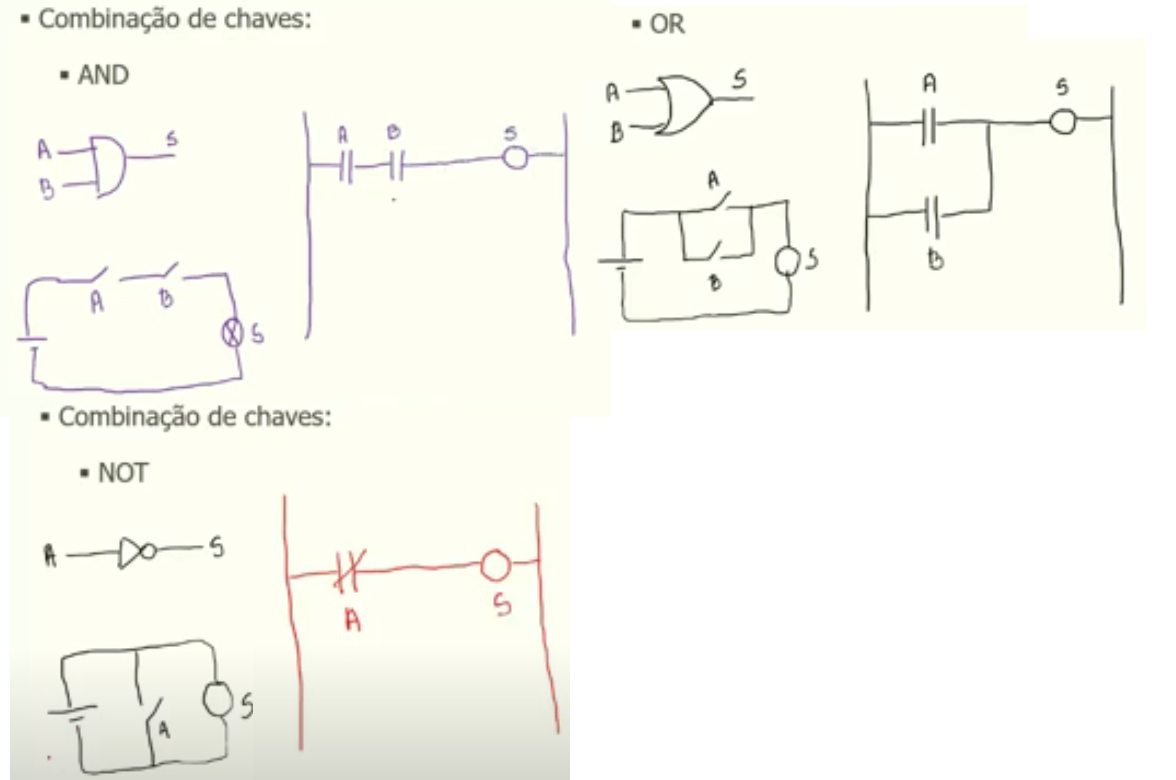 ▪ Combinação de chaves:
▪ AND
A
B
S
A B S
A B
S
▪ OR
A
B
S
A S
B
A
B
S
▪ Combinação de chaves:
▪ NOT
A S
A
S
A
S